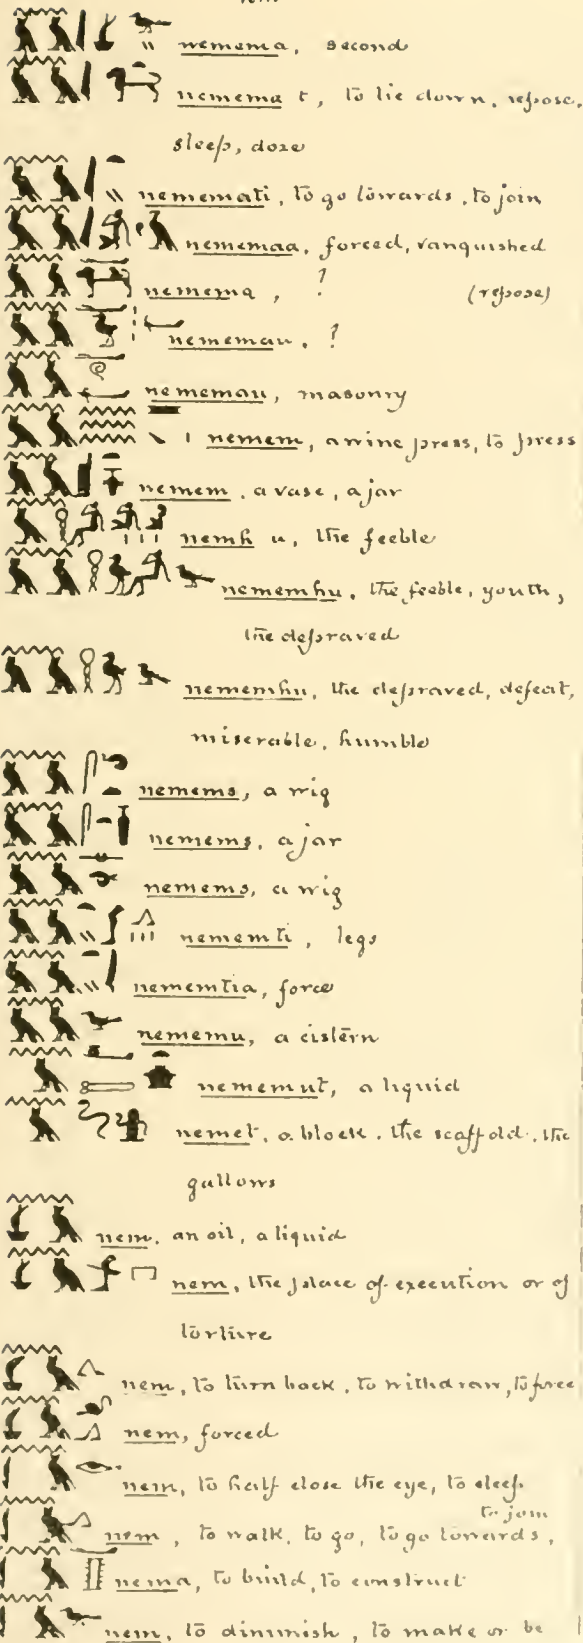 nemema, second
nemema t, to lie down, repose,
sleep, doze
nememati, to go towards, to join
nememaa, forced, vanquished
nemema, ? (repose)
nememau, ?
nememau, masonry
nemem, a wine press, to press
nemem, a vase, a jar
nemh u, the feeble
nememhu, the feeble, youth,
the depraved
nememhu, the depraved, defeat,
miserable, humble
nemems, a wig
nemems, a jar
nemems, a wig
nememti, legs
nememtia, force
nememu, a cistern
nememut, a liquid
nemet, a block, the scaffold, the
gallows
nem, an oil, a liquid
nem, the place of execution or of
torture
nem, to turn back, to withdraw, to force
nem, forced
nem, to half close the eye, to sleep
to join
nem, to walk, to go, to go towards,
nema, to build, to construct
nem, to diminish, to make or be